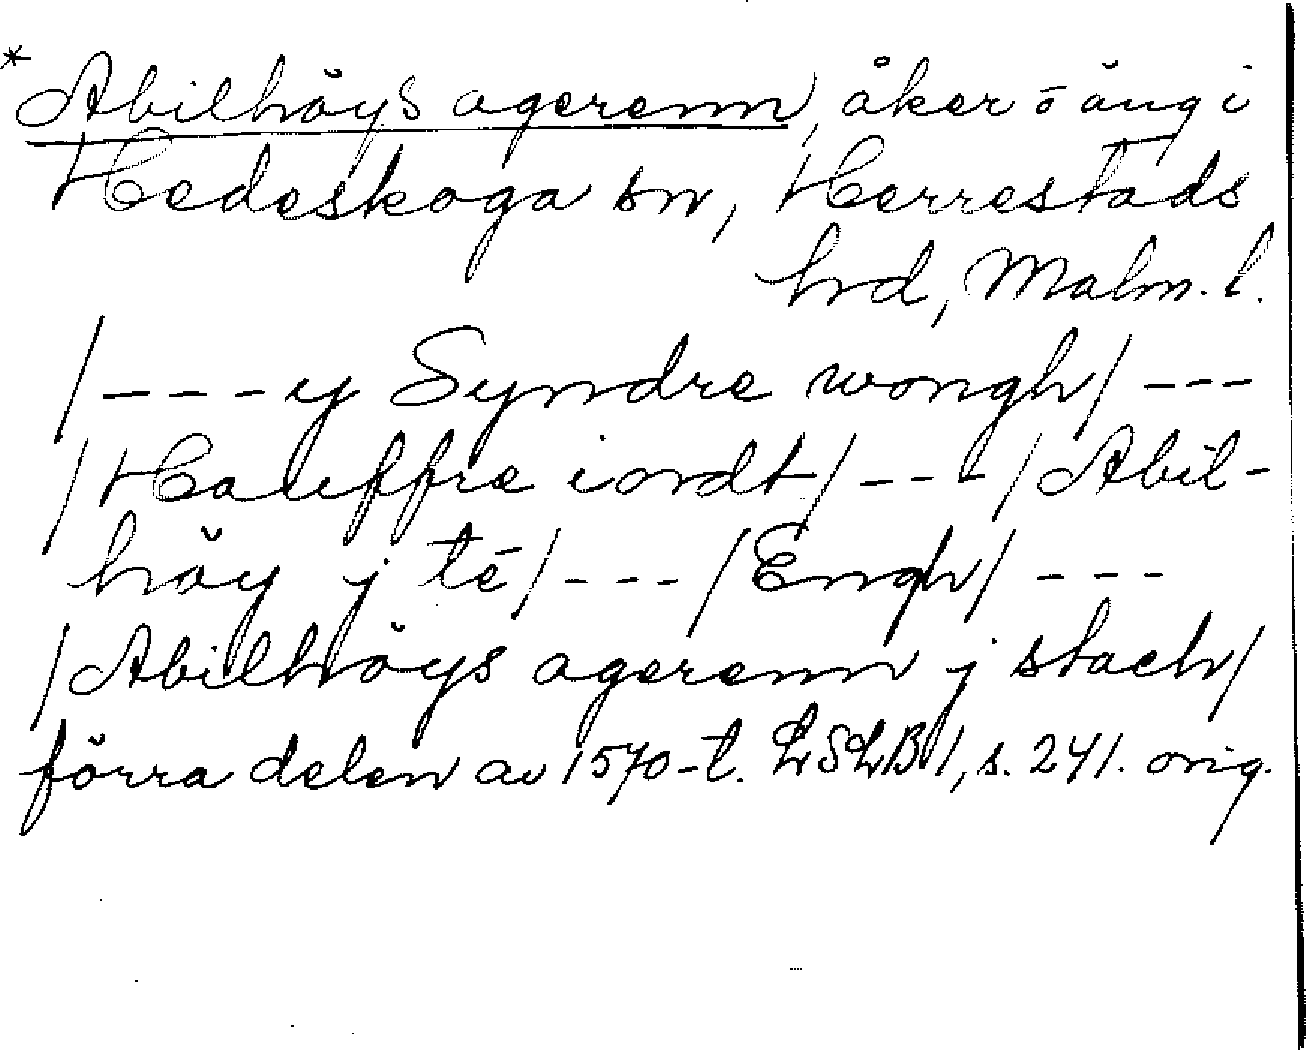 *Abilhöys agerenn, åker o äng i
Hedeskoga sn, Herrestads
hrd, Malm. l.
/---y Syndre wongh/---
/Hauffre iordt/---/Abil-
höy j té/---/Engh/---
/Abilhöys agerenn j stach/
förra delen av 1570-t. LSLB1, s. 241. orig.